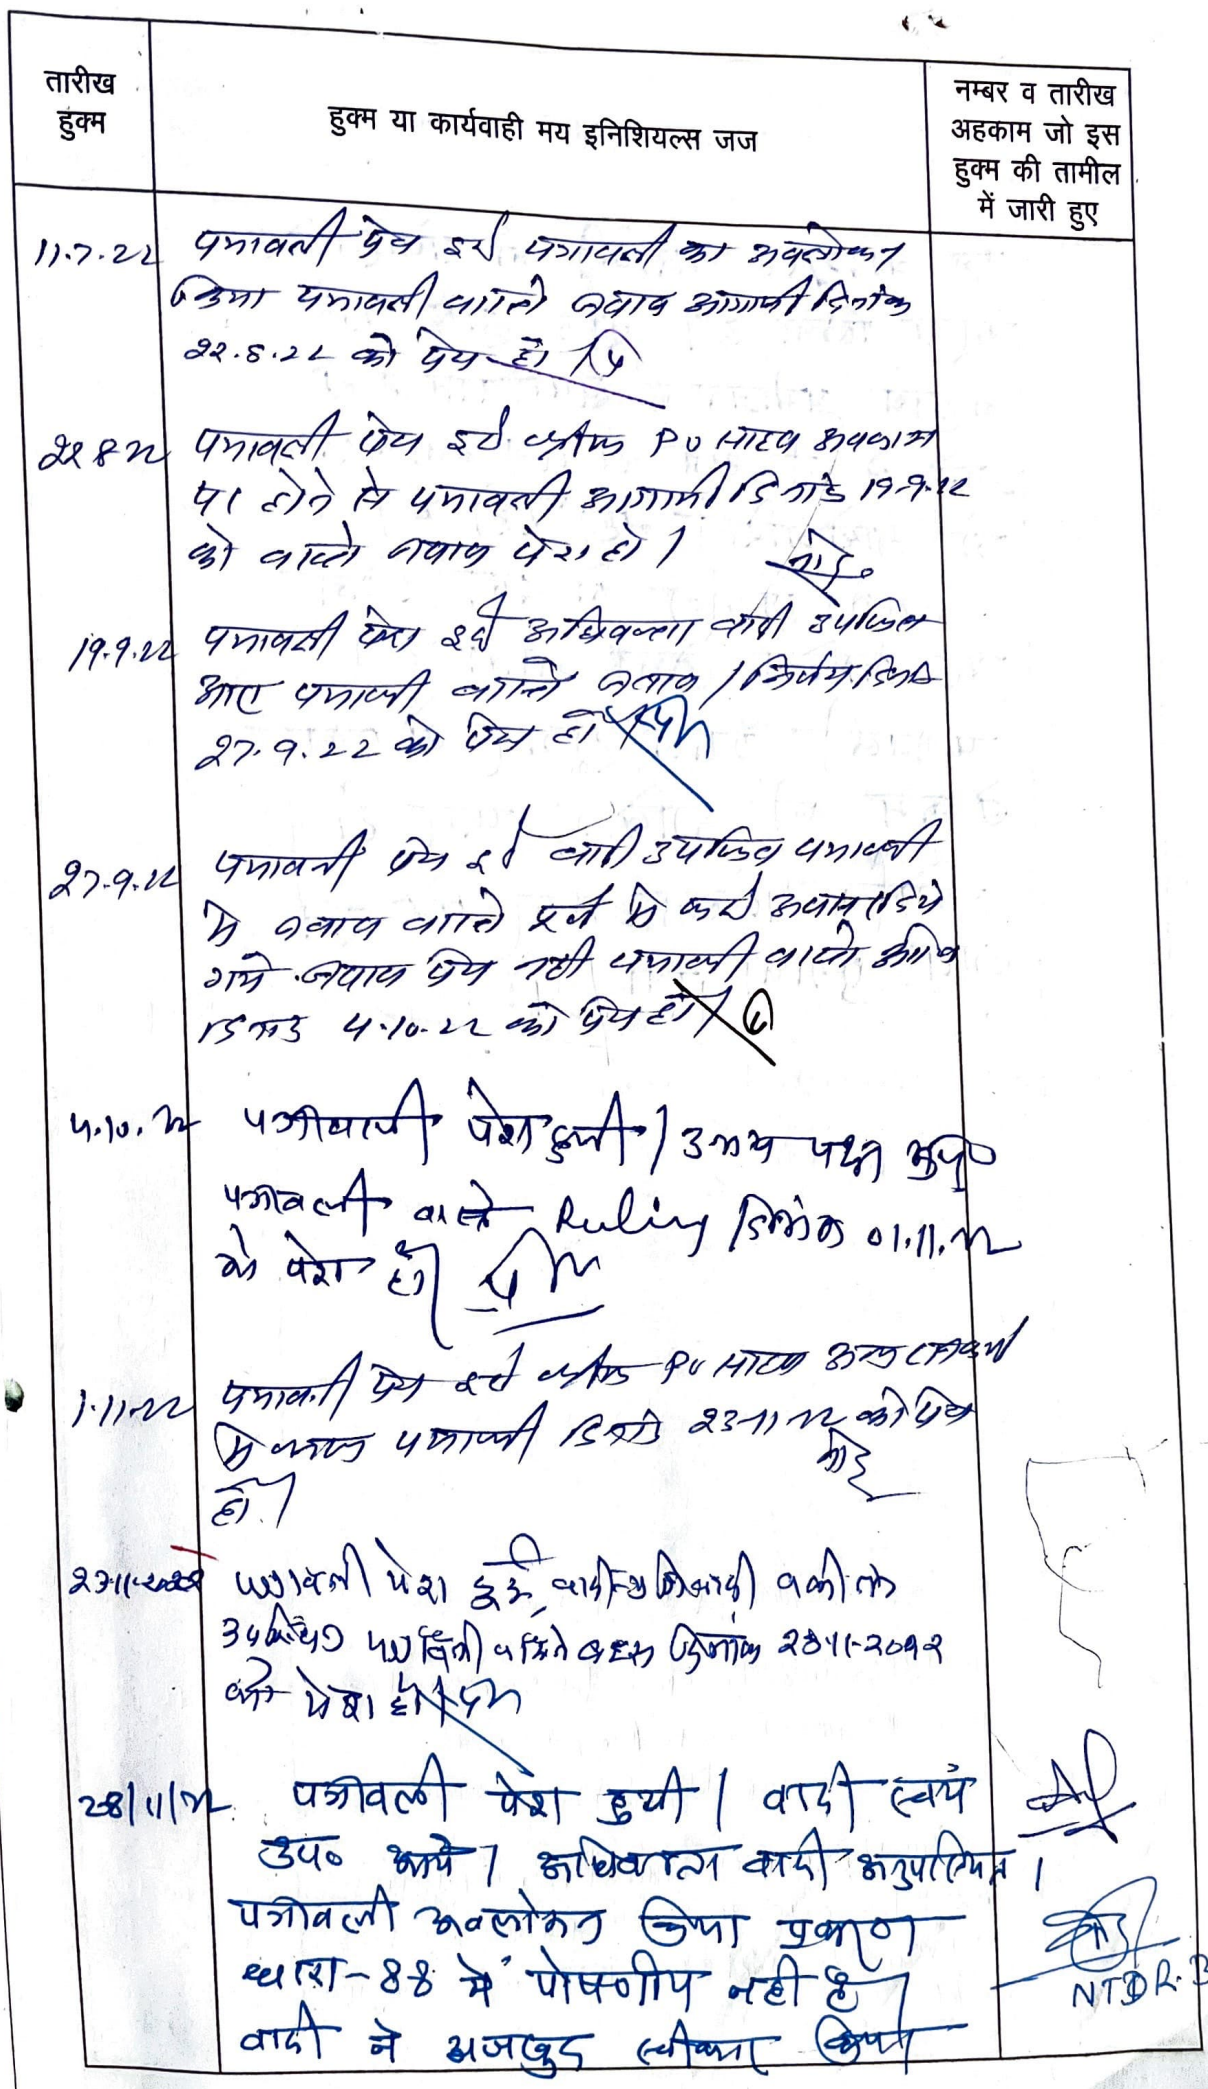 तारीख
हुक्म
हुक्म या कार्यवाही मय इनिशियल्स जज
नम्बर व तारीख
अहकाम जो इस
हुक्म की तामील
में जारी हुए
11.7.22 पत्रावली पेश हुई पत्रावली का अवलोकन
किया पत्रावली वास्ते जवाब आगामी दिनांक
22.8.22 को पेश हो।
22.8.22 पत्रावली पेश हुई PO साहब अवकाश
पर होने से पत्रावली आगामी दिनांक 19.9.22
को वास्ते जवाब पेश हो।
19.9.22 पत्रावली पेश हुई अधिवक्ता वादी उपस्थित
आए पत्रावली वास्ते जवाब / निर्णय दिनांक
27.9.22 को पेश हो
27.9.22 पत्रावली पेश हुई वादी उपस्थित पत्रावली
मे जवाब वास्ते पूर्व मे कई अवसर दिये
गये जवाब पेश नही पत्रावली वास्ते
दिनांक 4.10.22 को पेश हो।
4.10.22 पत्रावली पेश हुयी। उभय पक्ष
पत्रावली वास्ते Ruling दिनांक 01.11.22
को पेश हो।
1.11.22 पत्रावली पेश हुई PO साहब अन्य राजकार्य
मे पत्रावली दिनांक 23-11-22 को पेश
हो।
23-11-2022 पत्रावली पेश हुई, वादी प्रतिवादी वकील
उपस्थित पत्रावली वास्ते बहस दिनांक 28-11-2022
को पेश हो
28/11/22 पत्रावली पेश हुयी। वादी स्वयं
उप० आये। अधिवक्ता वादी अनुपस्थित।
पत्रावली अवलोकन किया प्रकरण
धारा-88 में पोषणीय नही है।
वादी ने अजखुद स्वीकार किया
NTDR.